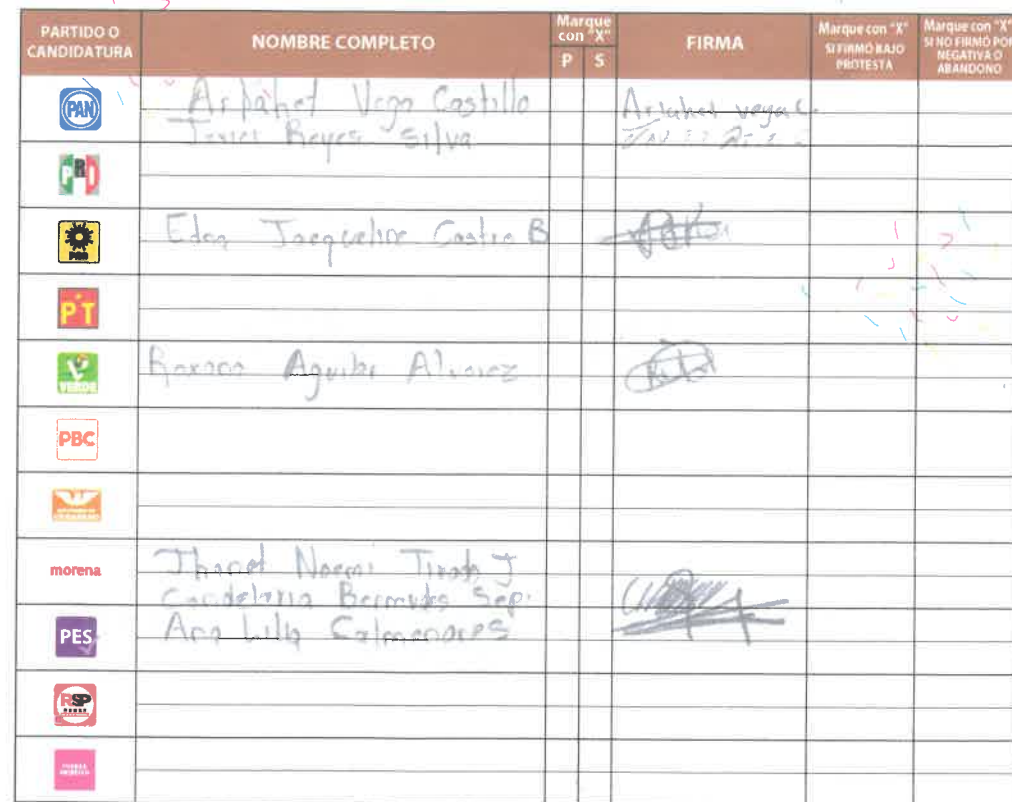 PARTIDO O CANDIDATURA
NOMBRE COMPLETO
Marque con "X"
P S
FIRMA
Marque con "X" SI FIRMÓ BAJO PROTESTA
Marque con "X" SI NO FIRMÓ POR NEGATIVA O ABANDONO
PAN
Vega Castillo
Reyes Silva
PRI
PRD
Jacqueline Castro B
PT
VERDE
Aguilar Alvarez
PBC
morena
Noemi Tirado J
Candelaria Bermudes Sep.
PES
Ana Lilia Colmenares
RSP